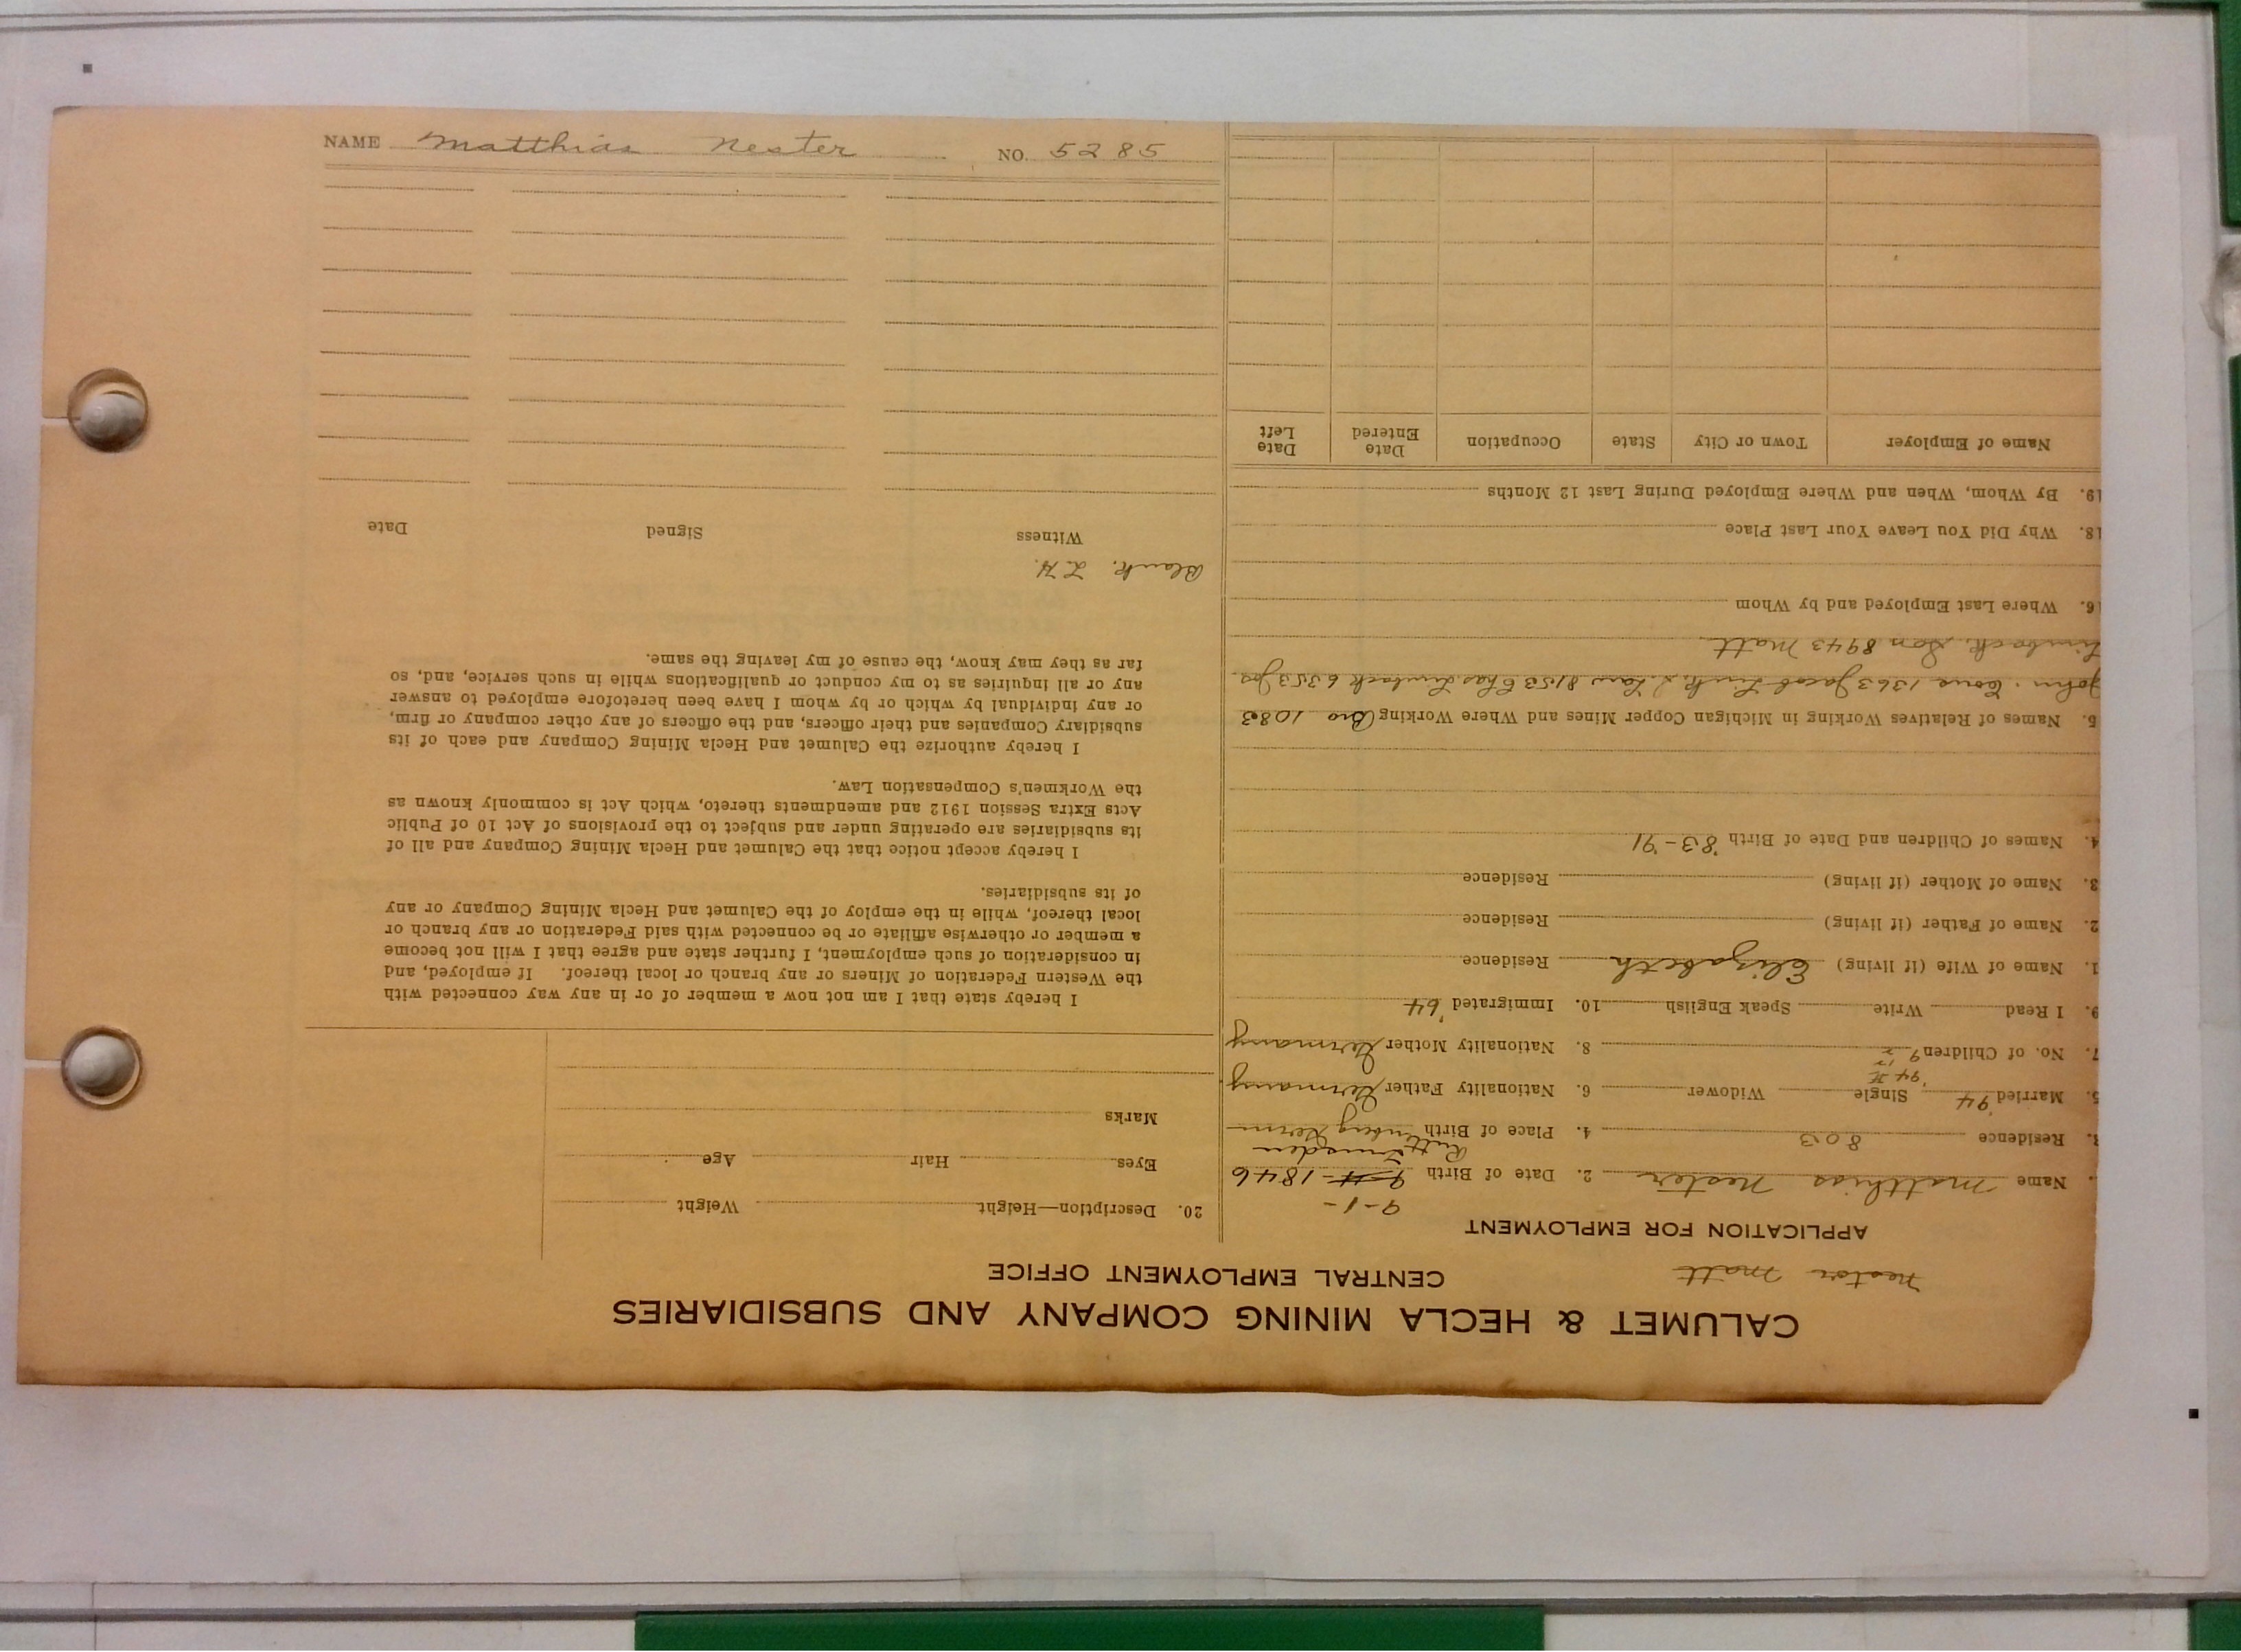 NAME Matthias Nester NO. 5285
CALUMET & HECLA MINING COMPANY AND SUBSIDIARIES
Nestor Matt
CENTRAL EMPLOYMENT OFFICE
APPLICATION FOR EMPLOYMENT
9-1-
Name Matthias Nester 2. Date of Birth 1846
3. Residence 803 4. Place of Birth
5. Married '94 Single Widower 6. Nationality Father Germany
'94
7. No. of Children 9 8. Nationality Mother Germany
9. I Read Write Speak English 10. Immigrated '64
1. Name of Wife (if living) Elizabeth Residence
2. Name of Father (if living) Residence
3. Name of Mother (if living) Residence
4. Names of Children and Date of Birth '83-'91
5. Names of Relatives Working in Michigan Copper Mines and Where Working Bro 1083
John. 1363 Jacob Law 8153 Chas Limback 6353 Jos.
Limback. Son 8943 Matt
16. Where Last Employed and by Whom
18. Why Did You Leave Your Last Place
19. By Whom, When and Where Employed During Last 12 Months
Name of Employer Town or City State Occupation Date Entered Date Left
20. Description—Height Weight
Eyes Hair Age
Marks
I hereby state that I am not now a member of or in any way connected with
the Western Federation of Miners or any branch or local thereof. If employed, and
in consideration of such employment, I further state and agree that I will not become
a member or otherwise affiliate or be connected with said Federation or any branch or
local thereof, while in the employ of the Calumet and Hecla Mining Company or any
of its subsidiaries.
I hereby accept notice that the Calumet and Hecla Mining Company and all of
its subsidiaries are operating under and subject to the provisions of Act 10 of Public
Acts Extra Session 1912 and amendments thereto, which Act is commonly known as
the Workmen's Compensation Law.
I hereby authorize the Calumet and Hecla Mining Company and each of its
subsidiary Companies and their officers, and the officers of any other company or firm,
or any individual by which or by whom I have been heretofore employed to answer
any or all inquiries as to my conduct or qualifications while in such service, and, so
far as they may know, the cause of my leaving the same.
Blank. L.H.
Witness Signed Date